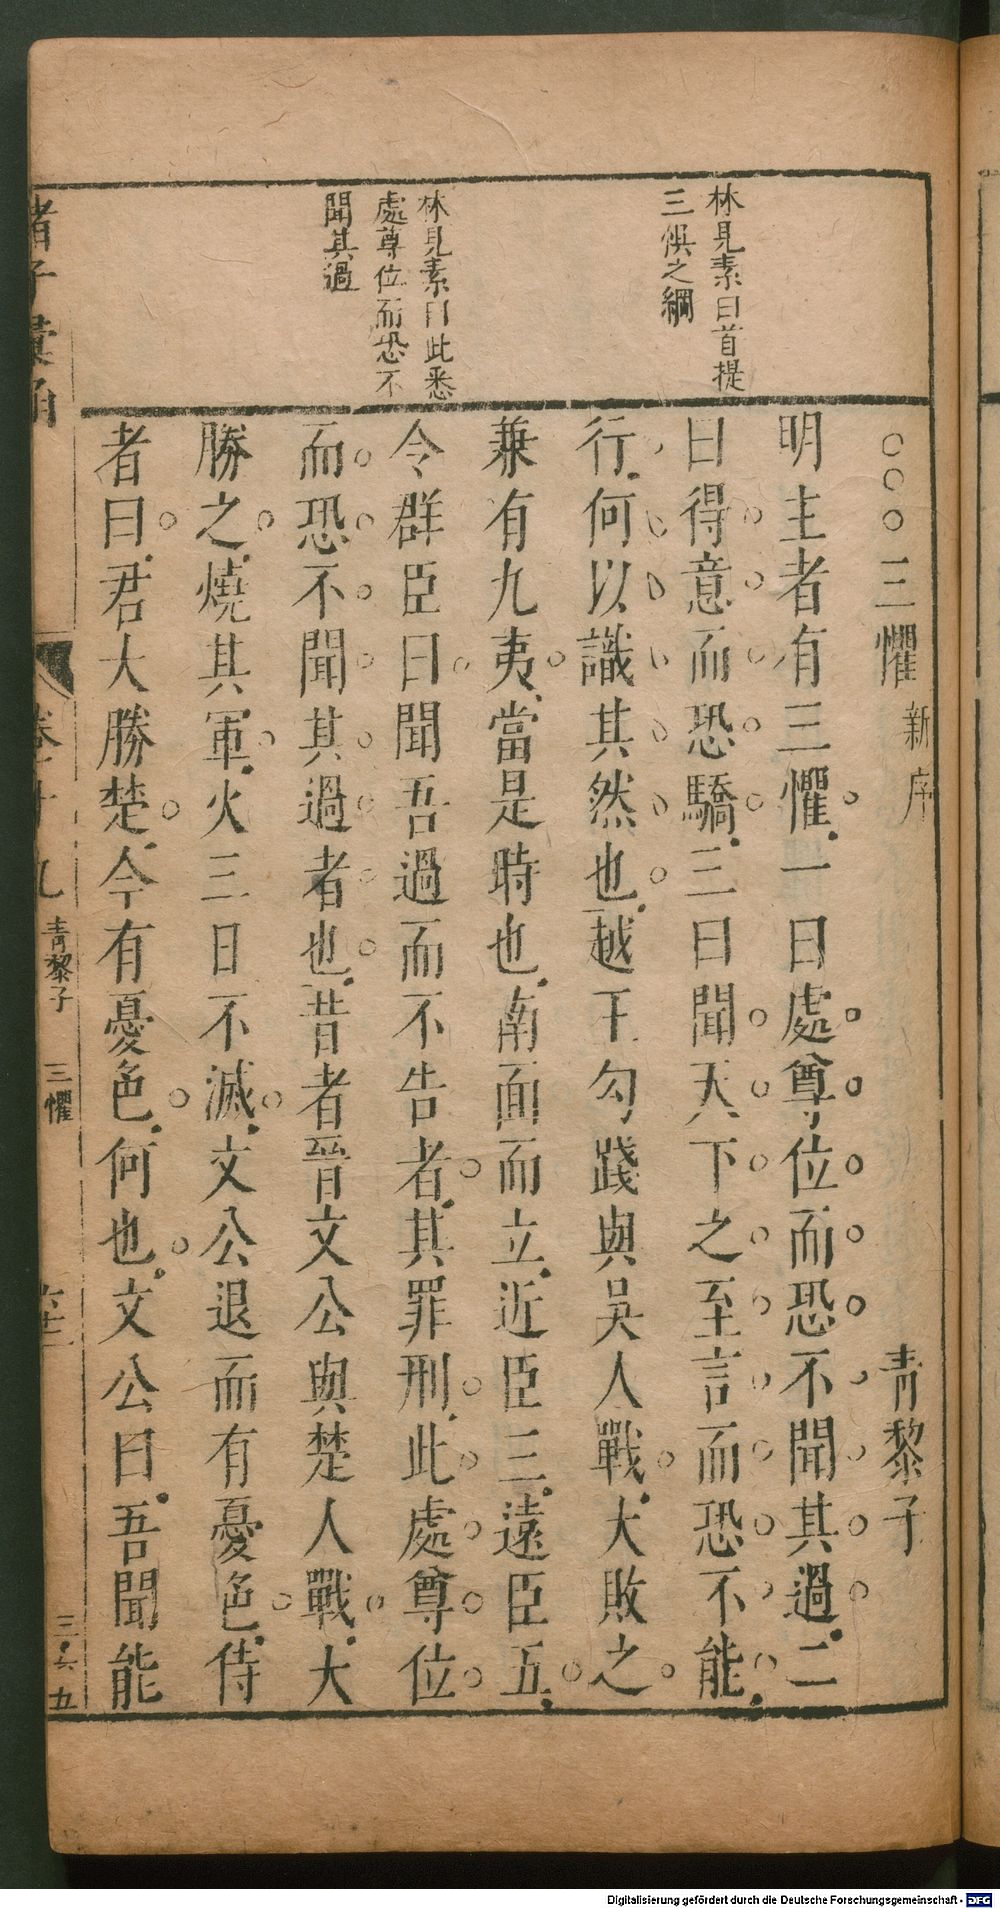 林見素曰首提
三惧之綱
林見素曰此悉
處尊位而恐不
聞其過
○○○三懼 新序 青黎子
明主者有三懼一曰處尊位而恐不聞其過二
曰得意而恐驕三曰聞天下之至言而恐不能
行何以識其然也越王勾踐與吳人戰大敗之
兼有九夷當是時也南面而立近臣三遠臣五
令群臣曰聞吾過而不告者其罪刑此處尊位
而恐不聞其過者也昔者晉文公與楚人戰大
勝之燒其軍火三日不滅文公退而有憂色侍
者曰君大勝楚今有憂色何也文公曰吾聞能
諸子彙函 卷十九 青黎子 三懼 三六五
Digitalisierung gefördert durch die Deutsche Forschungsgemeinschaft - DFG